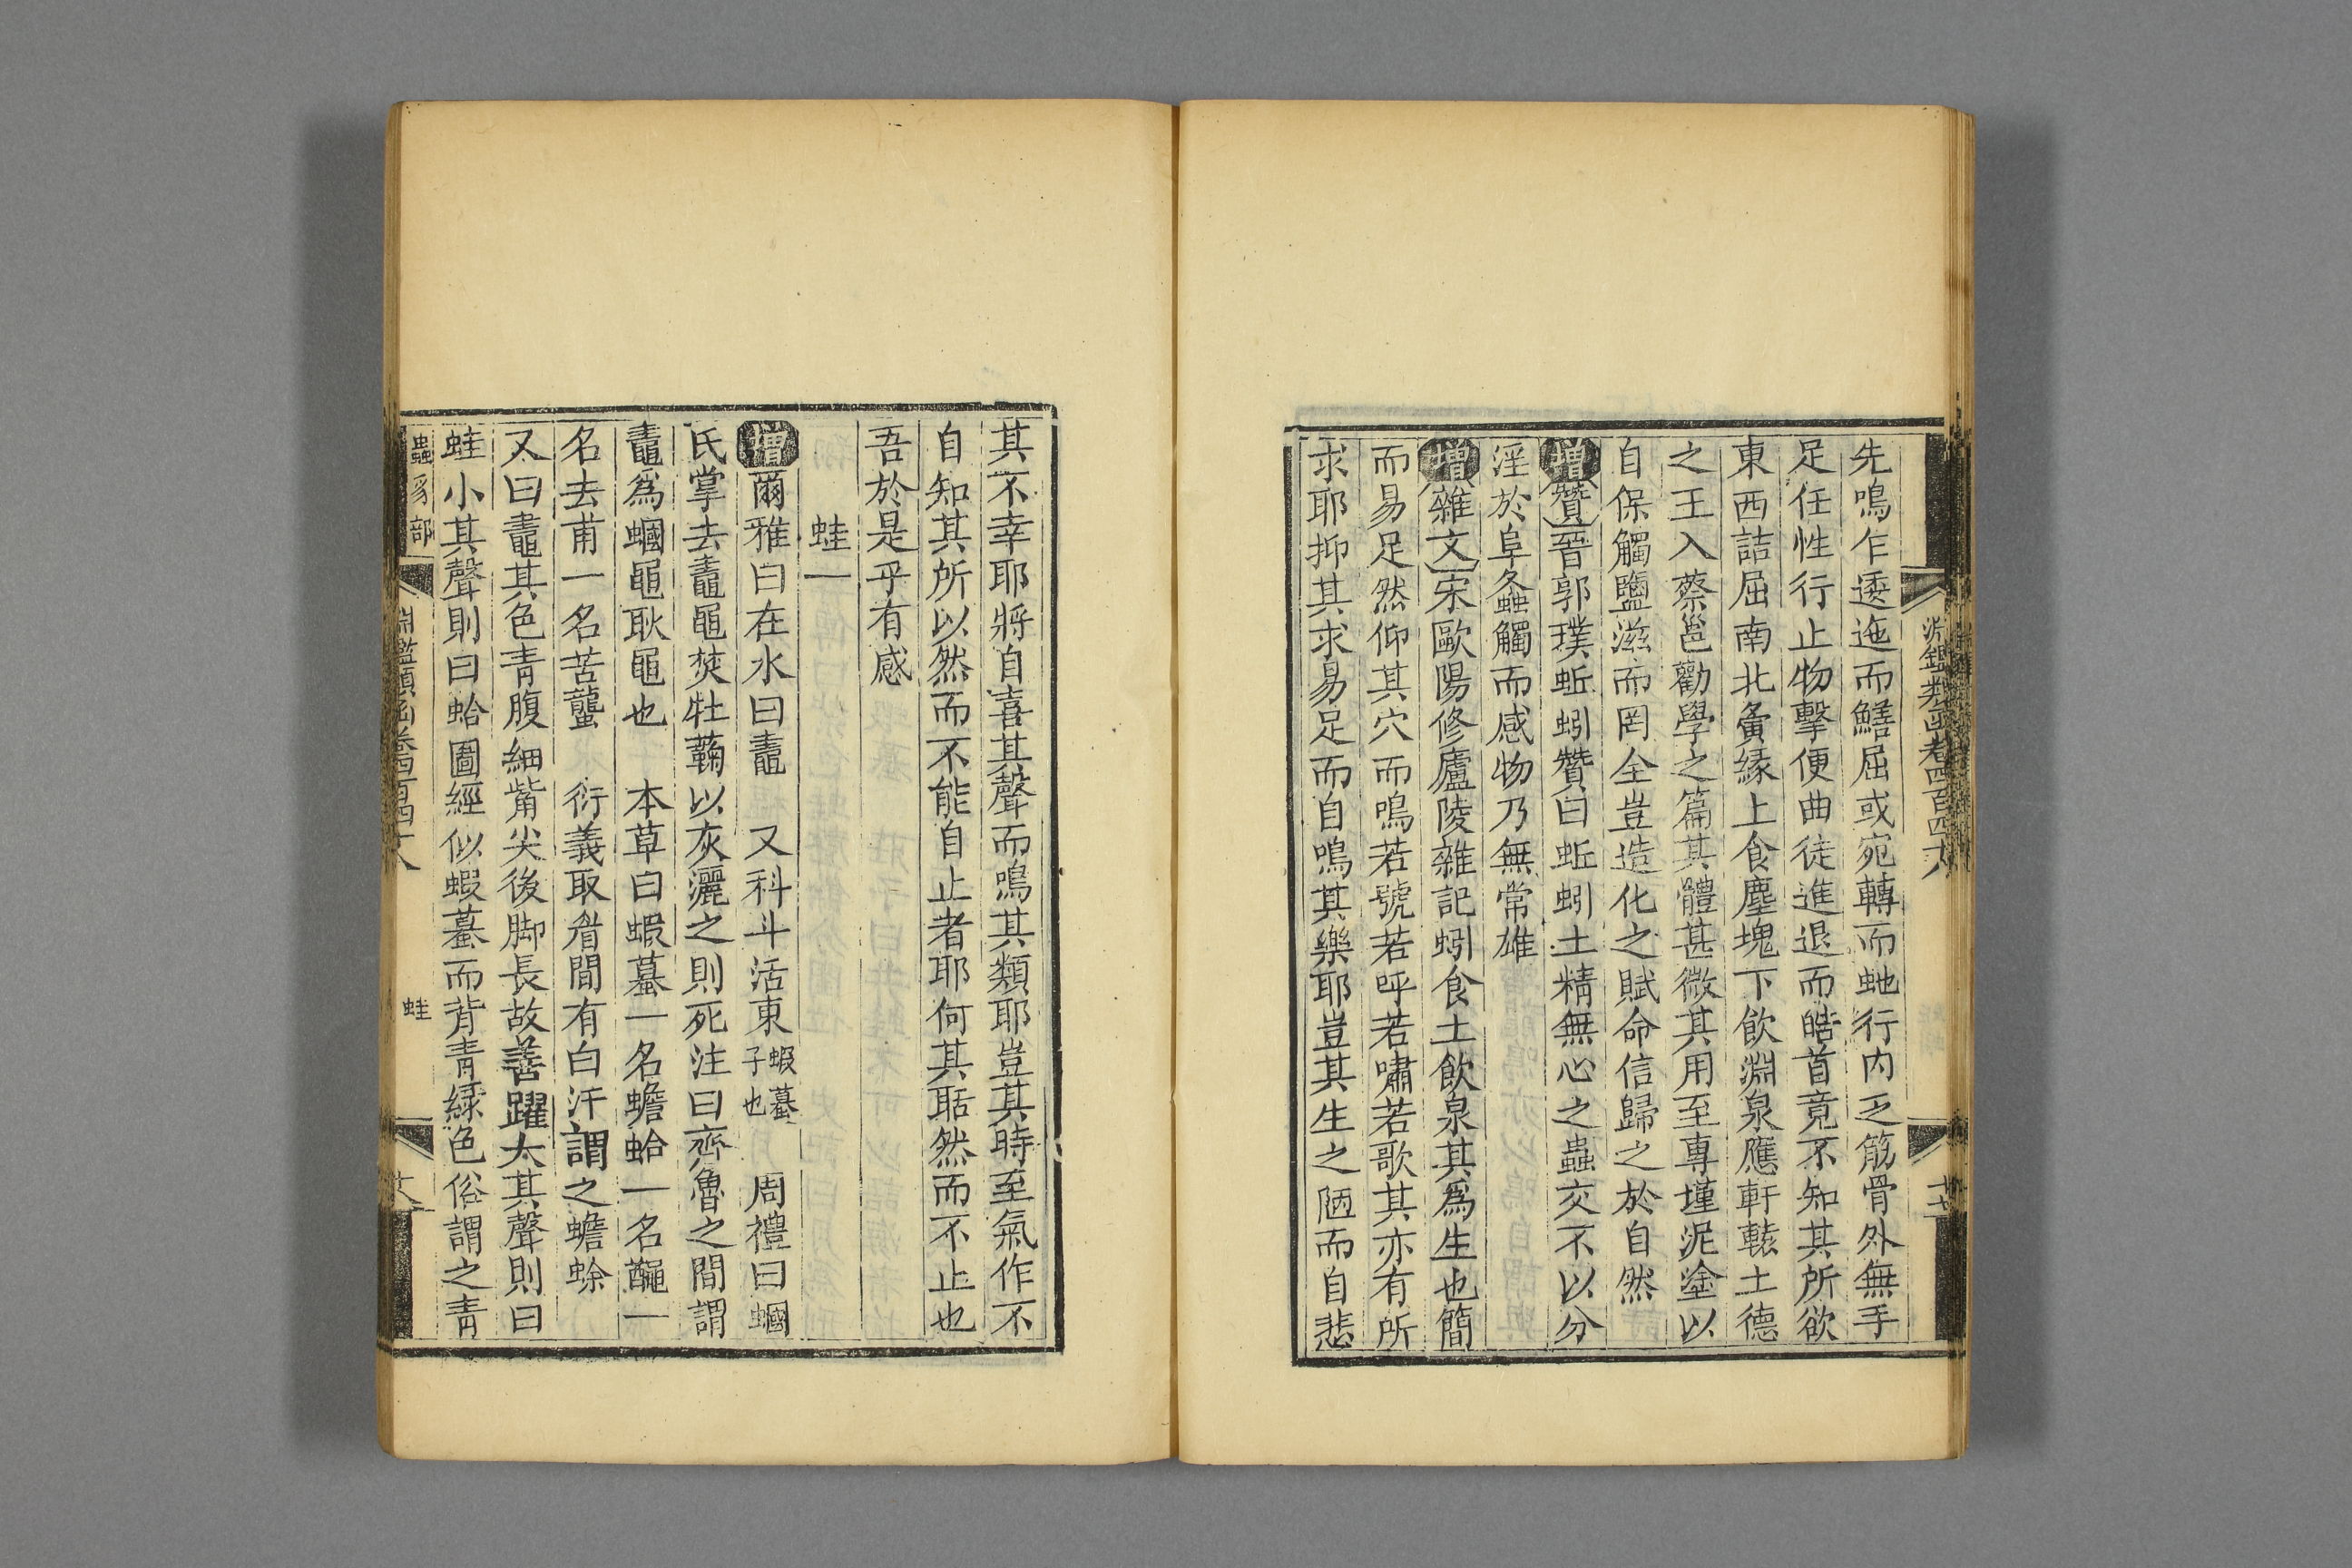 先鳴乍逶迤而鱔屈或宛轉而虵行内乏筋骨外無手
足任性行止物擊便曲徒進退而皓首竟不知其所欲
東西詰屈南北夤縁上食塵塊下飲淵泉應軒轅土德
之王入蔡邕勸學之篇其體甚微其用至專墐泥塗以
自保觸鹽滋而罔全豈造化之賦命信歸之於自然
增贊晉郭璞蚯蚓贊曰蚯蚓土精無心之蟲交不以分
淫於阜螽觸而感物乃無常雄
增雜文宋歐陽修廬陵雜記蚓食土飲泉其爲生也簡
而易足然仰其穴而鳴若號若呼若嘯若歌其亦有所
求耶抑其求易足而自鳴其樂耶豈其生之陋而自悲
其不幸耶將自喜其聲而鳴其類耶豈其時至氣作不
自知其所以然而不能自止者耶何其聒然而不止也
吾於是乎有感
蛙一
增爾雅曰在水曰鼃 又科斗活東蝦蟇子也 周禮曰蟈
氏掌去鼃黽焚牡蘜以灰灑之則死注曰齊魯之間謂
鼃爲蟈黽耿黽也 本草曰蝦蟇一名蟾蛤一名䵷一
名去甫一名苦蠪 衍義取眉間有白汗謂之蟾蜍
又曰鼃其色青腹細觜尖後脚長故善躍大其聲則曰
蛙小其聲則曰蛤圖經似蝦蟇而背青緑色俗謂之青
蟲豸部
淵鑑類函卷四百四十八
蛙